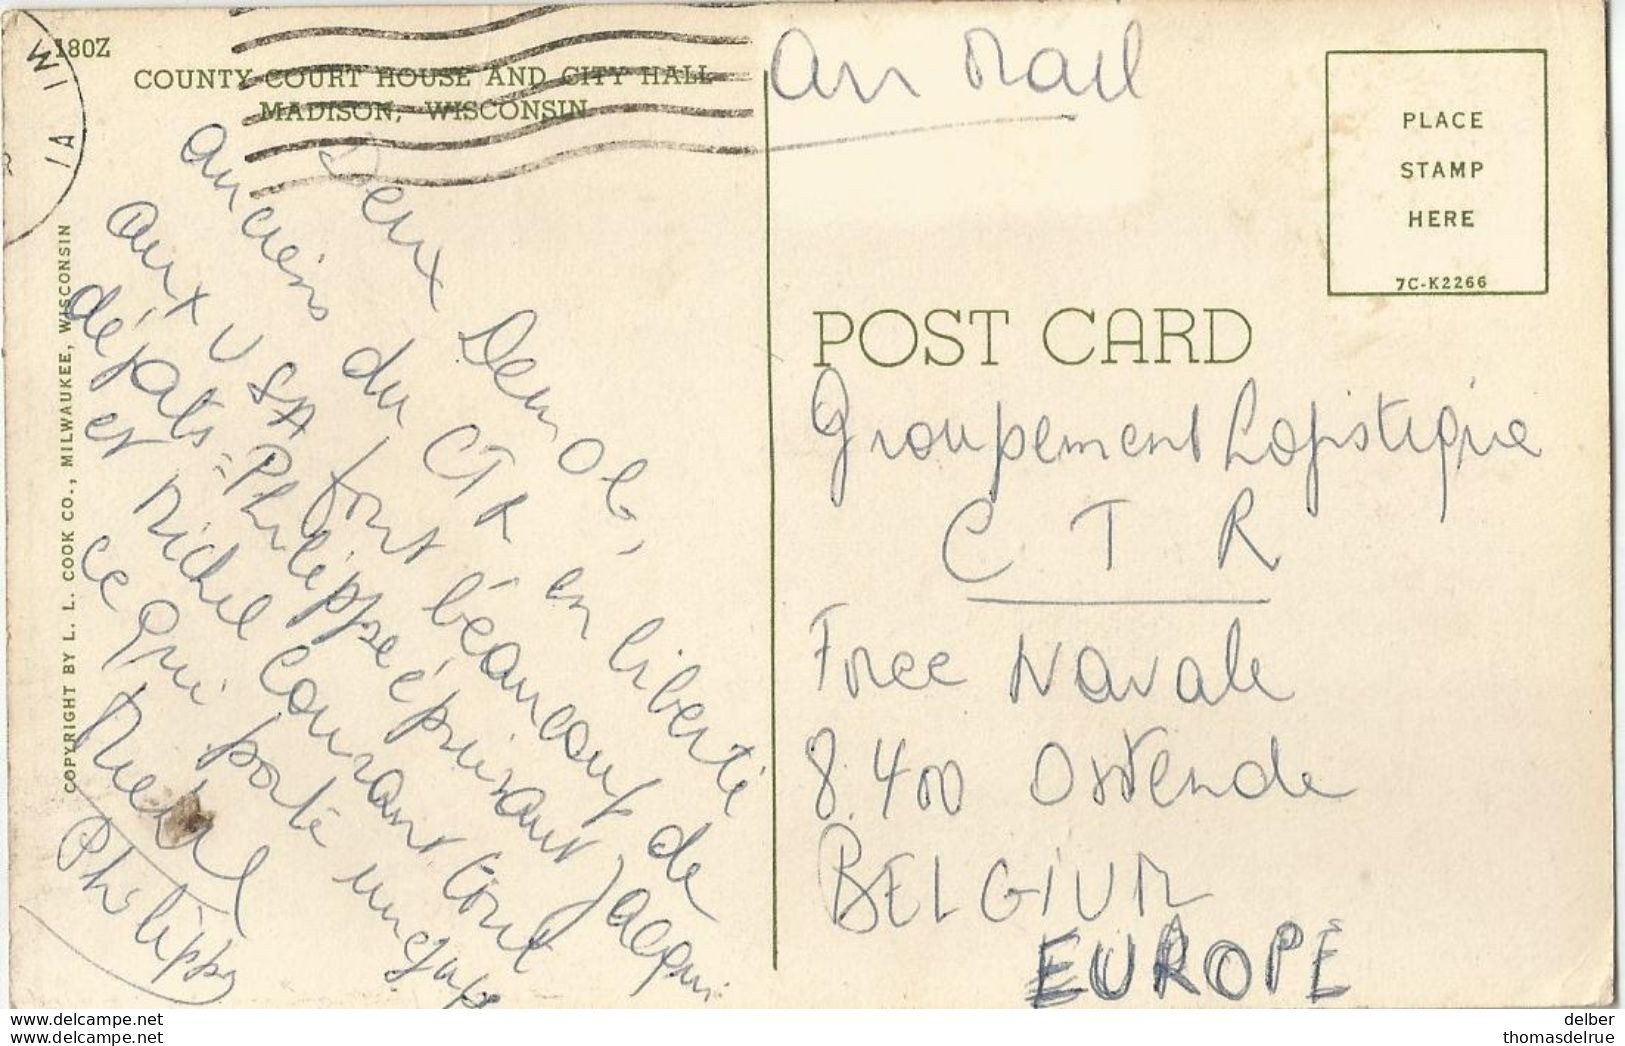 180Z
COUNTY COURT HOUSE AND CITY HALL
MADISON, WISCONSIN
WI
COPYRIGHT BY L. L. COOK CO., MILWAUKEE, WISCONSIN
Deux Demob,
anciens du CTR en liberté
aux USA font beaucoup de
dégats = Philippe épuisant Jacqui
et Michel courant tout
ce qui porte une jupe
Michel
Philippe
Air Mail
PLACE
STAMP
HERE
7C-K2266
POST CARD
Groupement Logistique
CTR
Force Navale
8.400 Ostende
BELGIUM
EUROPE
delcampe.net
delcampe.net
delber
thomasdelrue